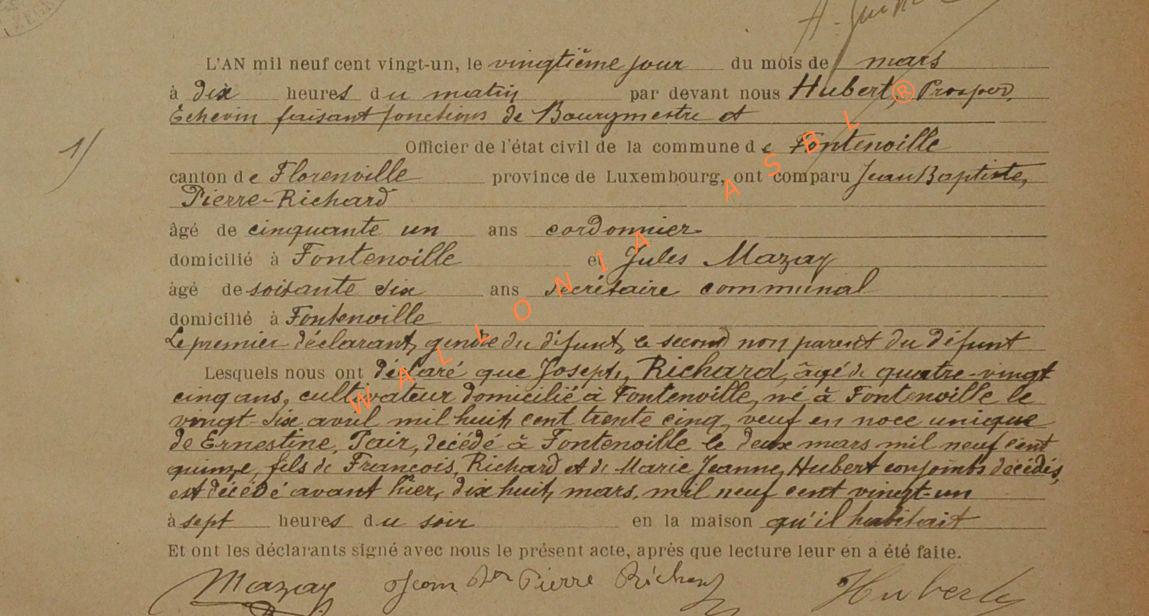 L'AN mil neuf cent vingt-un, le vingtième jour du mois de mars
à dix heures du matin par devant nous Hubert, Prosper,
Echevin faisant fonctions de Bourgmestre et
1/ Officier de l'état civil de la commune de Fontenoille
canton de Florenville province de Luxembourg, ont comparu Jean Baptiste,
Pierre-Richard
âgé de cinquante un ans cordonnier
domicilié à Fontenoille et Jules Mazay
âgé de soixante six ans secrétaire communal
domicilié à Fontenoille
Le premier déclarant, gendre du défunt, le second non parent du défunt
Lesquels nous ont déclaré que Joseph, Richard, âgé de quatre-vingt
cinq ans, cultivateur domicilié à Fontenoille, né à Fontenoille le
vingt-six avril mil huit cent trente cinq, veuf en noce unique
de Ernestine, Pair, décédé à Fontenoille le deux mars mil neuf cent
quinze, fils de François, Richard et de Marie Jeanne, Hubert conjoints décédés,
est décédé avant hier, dix huit, mars, mil neuf cent vingt-un
à sept heures du soir en la maison qu'il habitait
Et ont les déclarants signé avec nous le présent acte, après que lecture leur en a été faite.
Mazay Jean Bte Pierre Richard Hubert
WALLONIA ASBL ®